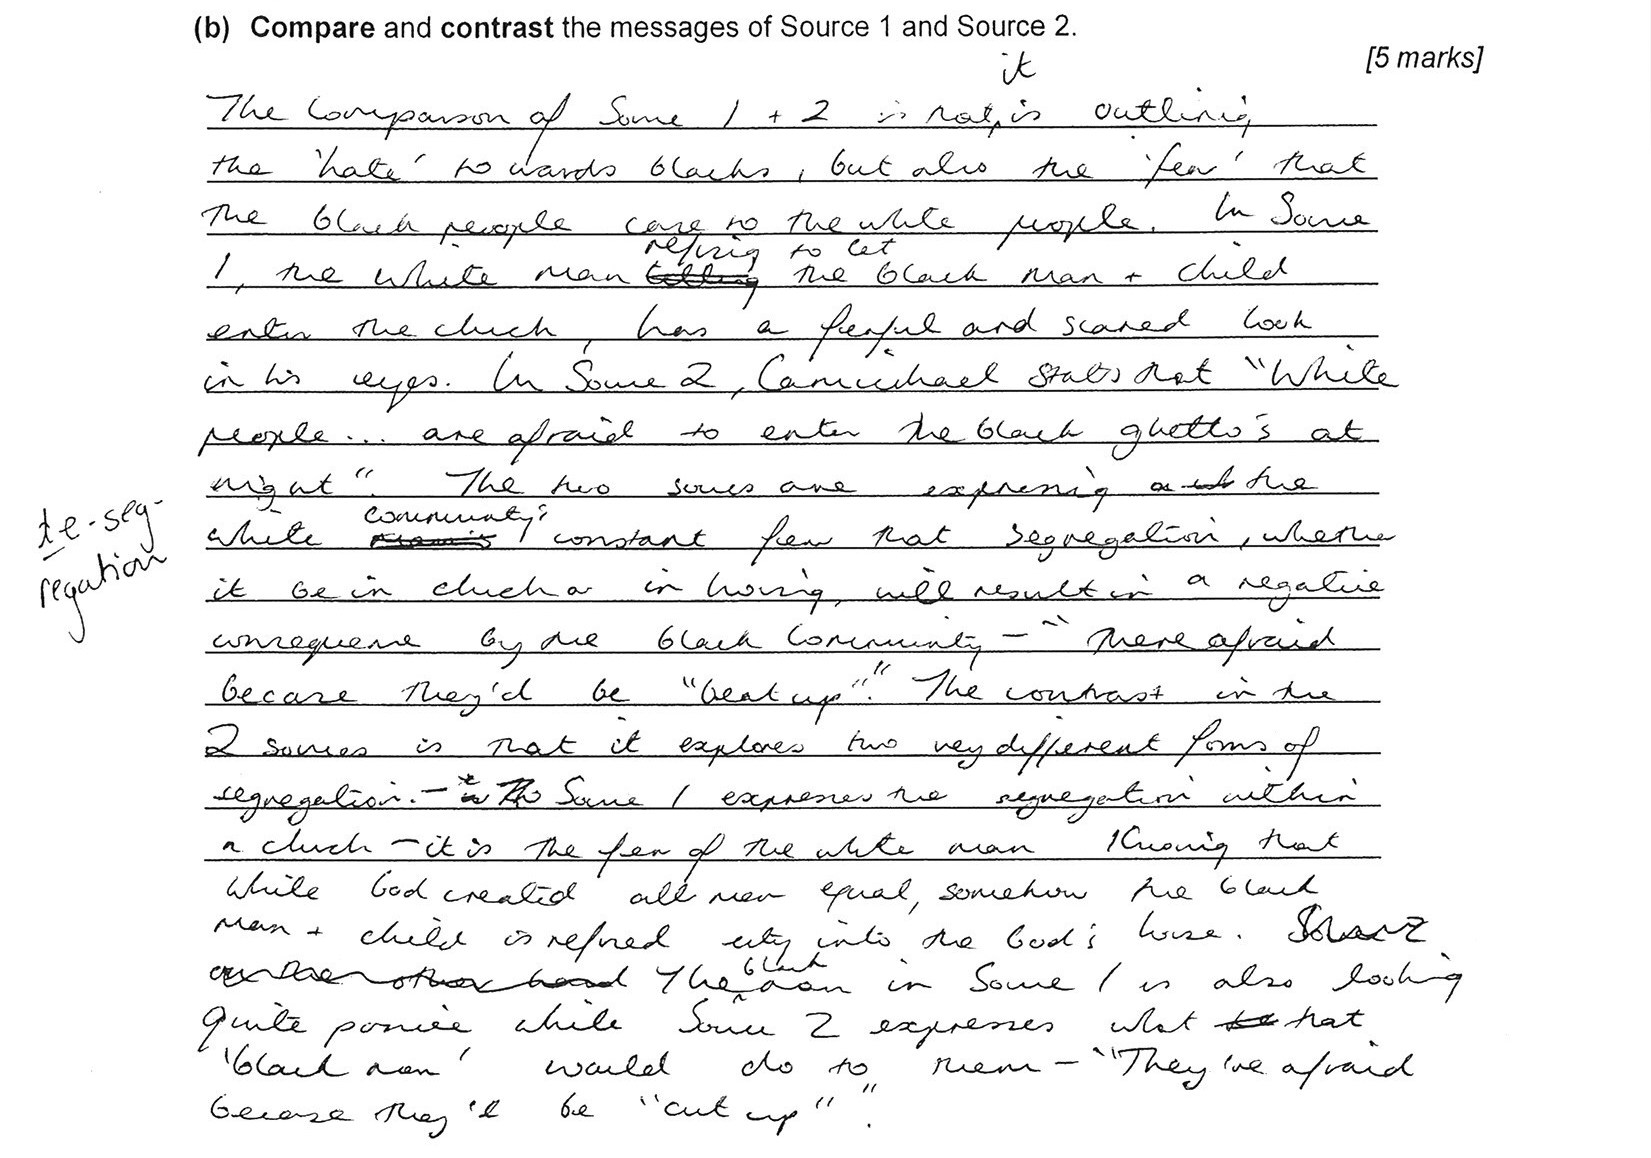 (b) Compare and contrast the messages of Source 1 and Source 2.
[5 marks]
it
The Comparison of Source 1 + 2 is that is outlining
the 'hate' towards blacks, but also the 'fear' that
the black people to the white people. In Source
refusing to let
1, the white man the black man + child
enter the church, has a fearful and scared look
in his eyes. In Source 2, Carmichael states that "White
people... are afraid to enter the black ghetto's at
night". The two sources are expressing the
community's
white constant fear that segregation, whether
te-seg-
regation
it be in church or in housing, will result in a negative
consequence by the black Community - " There afraid
because they'd be "beat up"". The contrast in the
2 sources is that it explores two very different forms of
segregation. - Source 1 expresses the segregation within
a church - it is the fear of the white man Knowing that
while God created all men equal, somehow the black
man + child is refused into the God's house.
on the other hand The man in Source 1 is also looking
black
quite while Source 2 expresses what that
'black man' would do to them - "They're afraid
because they'll be "cut up"".